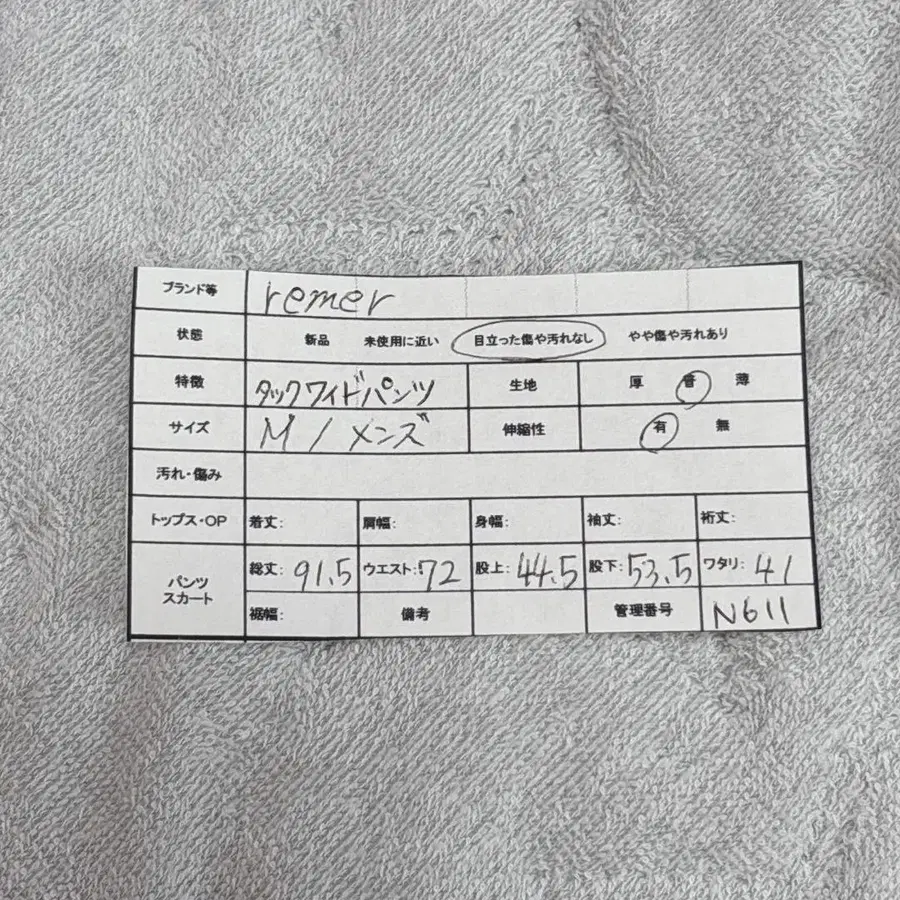 ブランド等 remer
状態 新品 未使用に近い 目立った傷や汚れなし やや傷や汚れあり
特徴 タックワイドパンツ 生地 厚 普 薄
サイズ M / メンズ 伸縮性 有 無
汚れ・傷み
トップス・OP 着丈: 肩幅: 身幅: 袖丈: 裄丈:
パンツ スカート 総丈: 91.5 ウエスト: 72 股上: 44.5 股下: 53.5 ワタリ: 41
裾幅: 備考 管理番号 N611